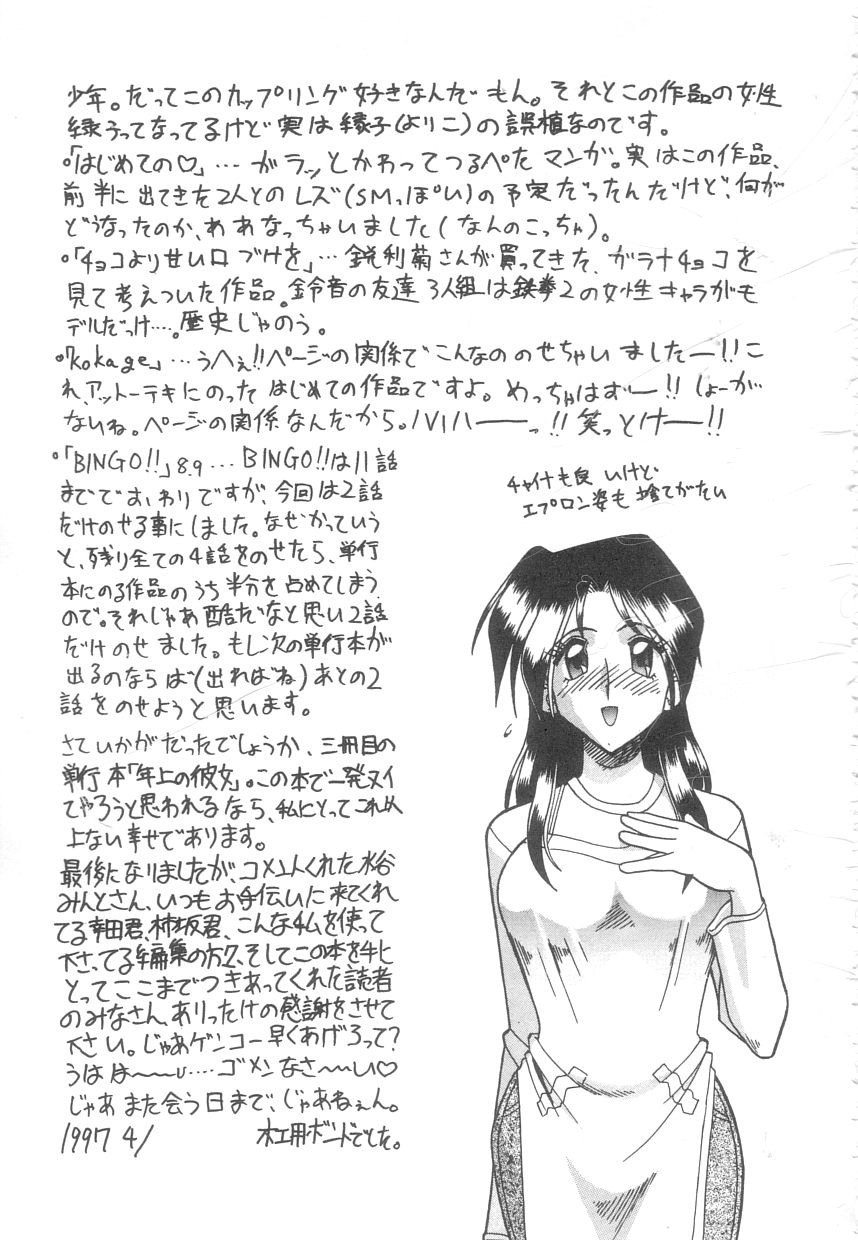 少年。だってこのカップリング好きなんだもん。それとこの作品の女性
縁うってなってるけど実は縁子(よりこ)の誤植なのです。
•「はじめての♡」…ガラッとかわってつるぺたマンガ。実はこの作品、
前半に出てきた2人とのレズ(SMっぽい)の予定だったんだけど、何が
どうなったのか、ああなっちゃいました(なんのこっちゃ)。
•「チョコより甘い口づけを」…鋭利菊さんが買ってきた、ガラナチョコを
見て考えついた作品。鈴音の友達3人組は鉄拳2の女性キャラがモ
デルだっけ…。歴史じゃのう。
•「kokage」…うへぇ!!ページの関係でこんなののせちゃいましたー!!こ
れ、アットーテキにのったはじめての作品ですよ。めっちゃはずー!!しょーが
ないね。ページの関係なんだから。ハハハーーっ!!笑っとけー!!
•「BINGO!!」8.9…BINGO!!は11話
まででおわりですが、今回は2話
だけのせる事にしました。なぜかっていう
と、残り全ての4話をのせたら、単行
本にのる作品のうち半分を占めてしまう
ので。それじゃあ酷だなと思い2話
だけのせました。もし次の単行本が
出るのならば(出ればね)あとの2
話をのせようと思います。
さていかがだったでしょうか、三冊目の
単行本「年上の彼女」。この本で一発ヌイ
てやろうと思われるなら、私にとってこれ以
上ない幸せであります。
最後になりましたが、コメ入れくれた水谷
みんとさん、いつもお手伝いに来てくれ
てる幸田君、柿坂君、こんな私を使って
下さってる編集の方々、そしてこの本を手に
とってここまでつきあってくれた読者
のみなさん、ありったけの感謝をさせて
下さい。じゃあゲンコー早くあげろって?
うはは〜〜…ゴメンなさ〜〜い♡
じゃあまた会う日まで、じゃあねぇん。
1997 4/ 木工用ボンドでした。
チャイナも良いけど
エプロン姿も捨てがたい